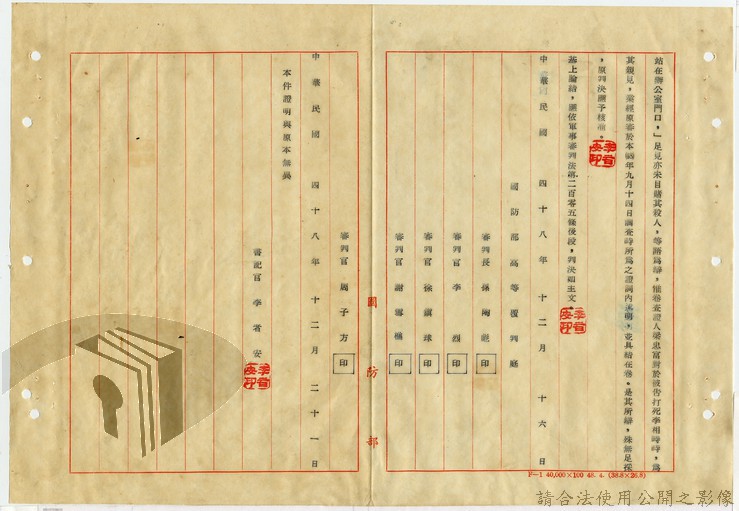 站在辦公室門口，」足見亦未目睹其殺人，等語為辯，惟卷查證人梁忠富對於被告打死李相時時，為
其親見，業經原審於本四年九月十四日調查時所為之證詞內述明，並具結在卷。是其所辯，殊無足採
，原判決應予核准。
基上論結，應依軍事審判法第二百零五條後段，判決如主文
中華民國四十八年十二月十六日
國防部高等覆判庭
審判長 孫
審判官 李烈
審判官 徐
審判官 謝
審判官 周子方
印
印
印
印
印
國防部
中華民國四十八年十二月二十一日
本件證明與原本無異
書記官 李者安
F—1 40,000×100 48. 4. (38.8×26.8)
請合法使用公開之影像